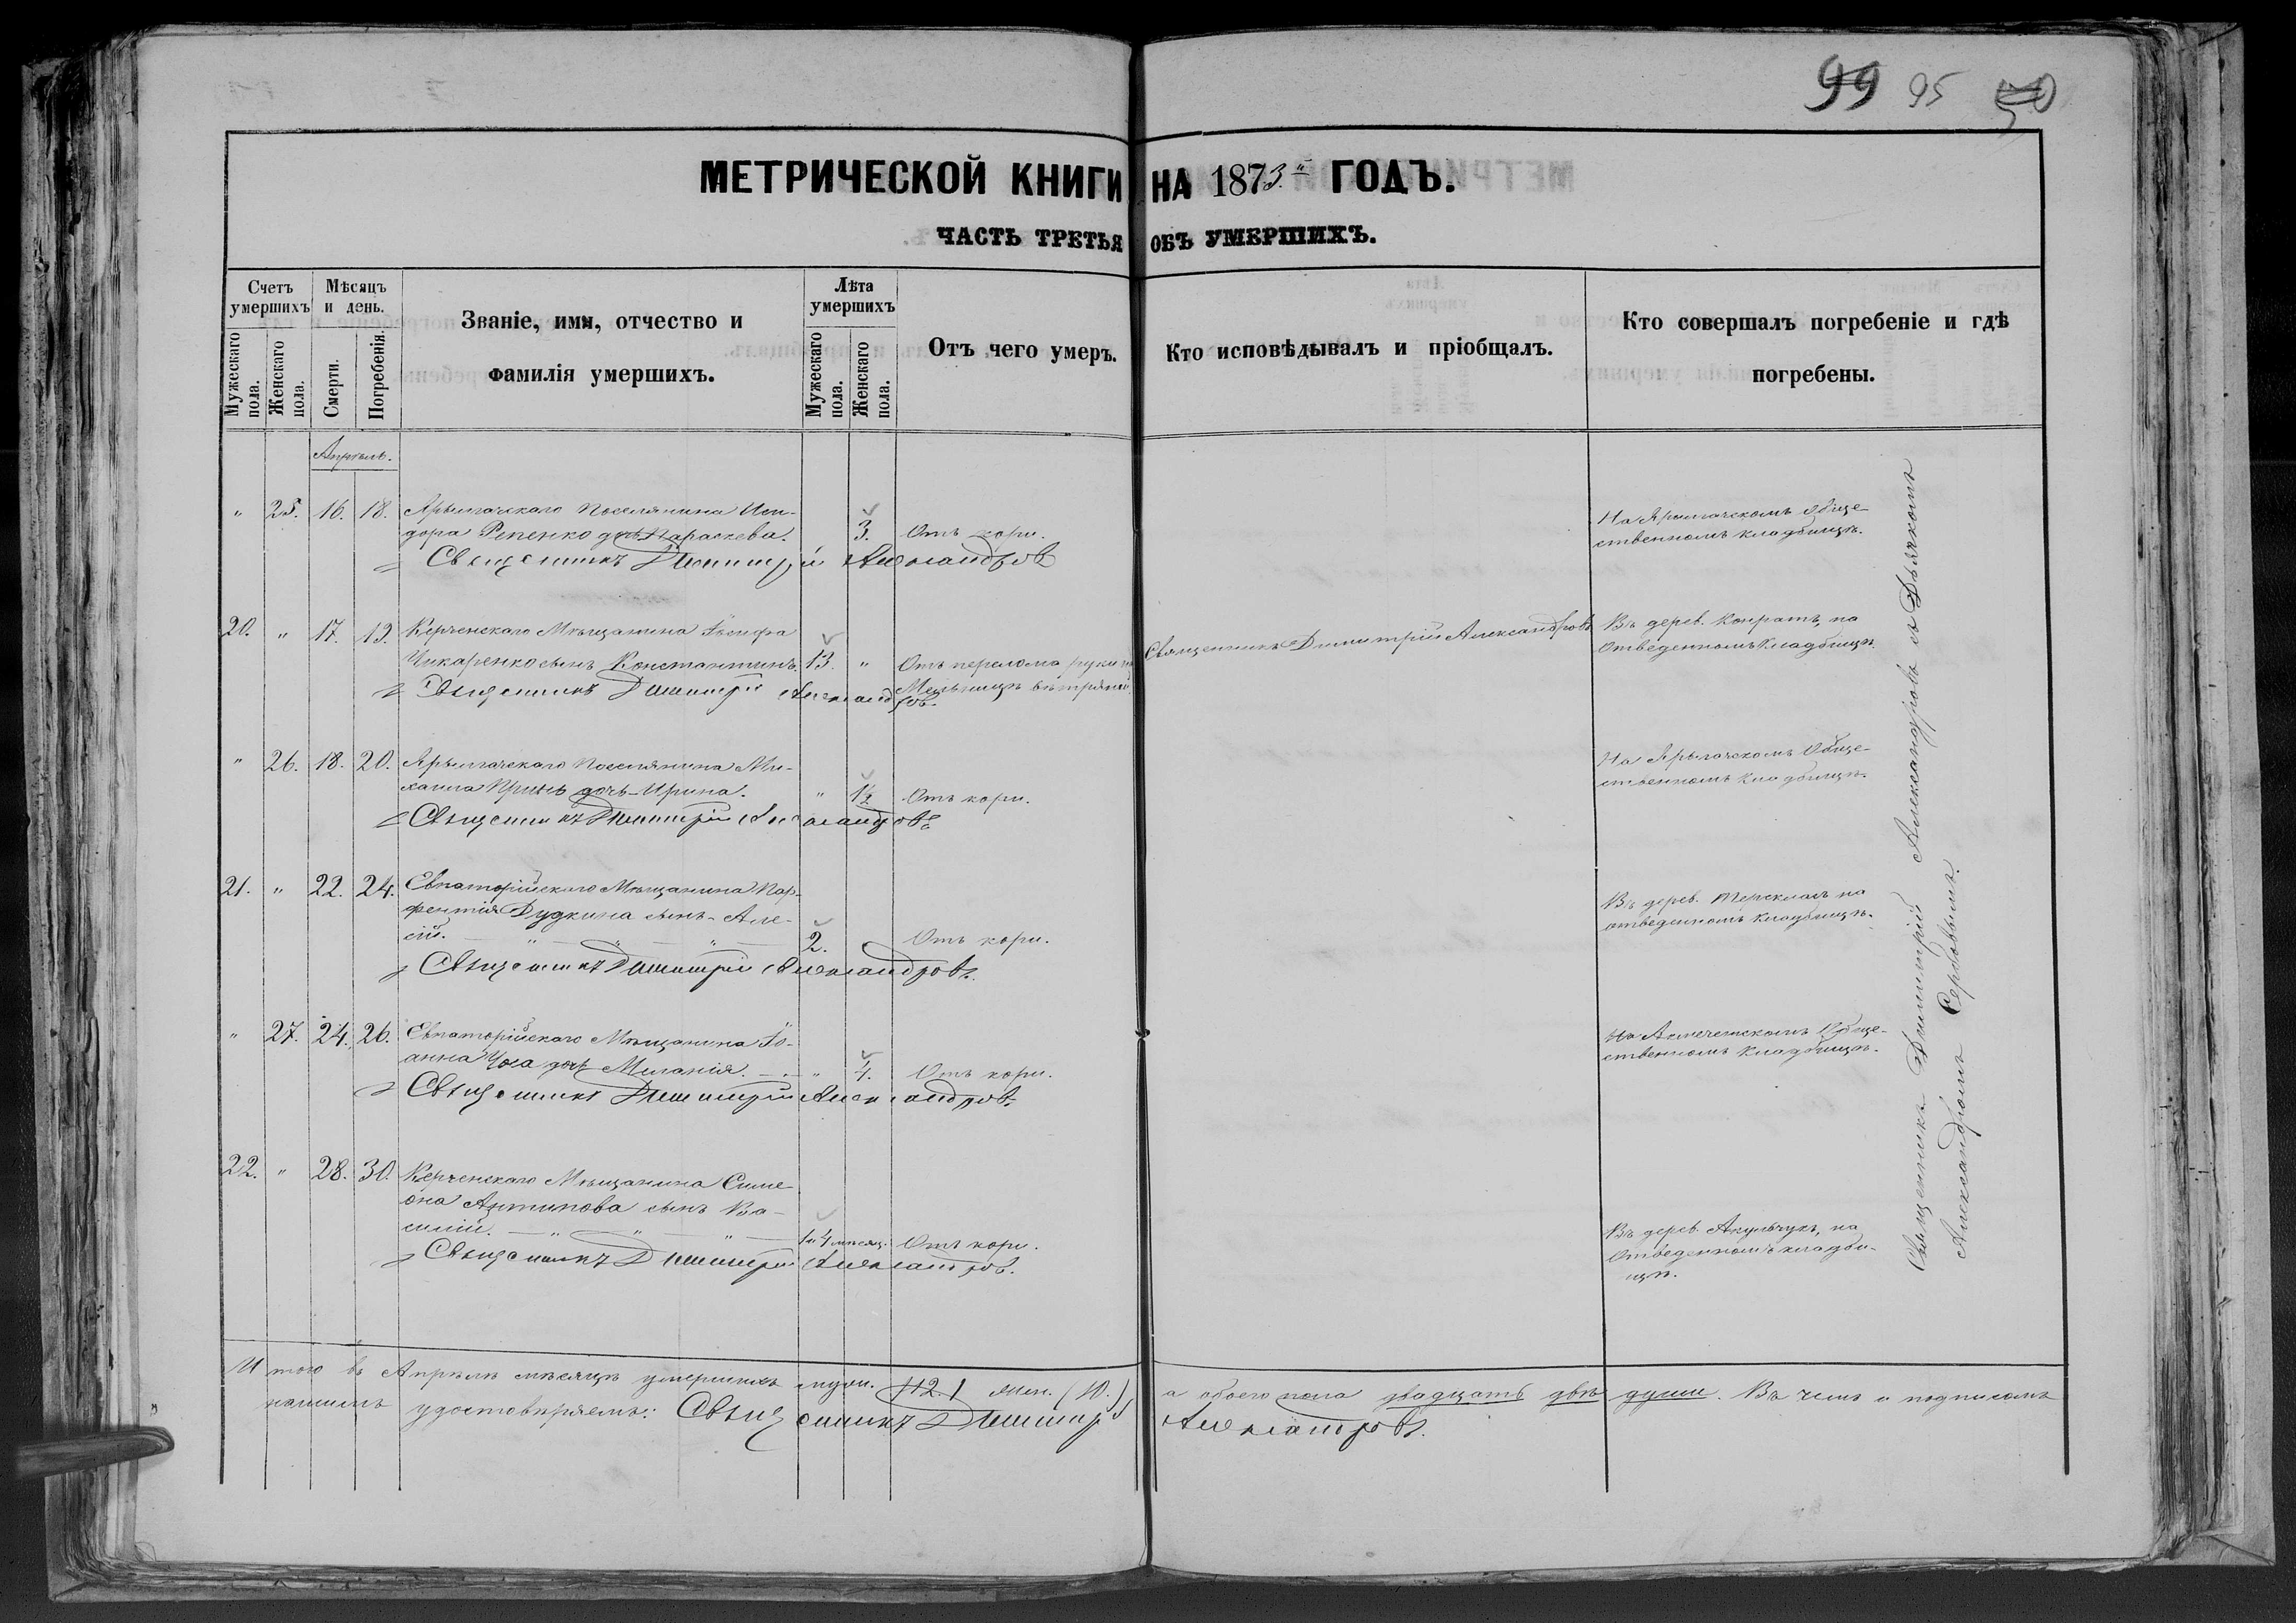 99 95 50
МЕТРИЧЕСКОЙ КНИГИ НА 1873й ГОДЪ.
ЧАСТЬ ТРЕТЬЯ ОБЪ УМЕРШИХЪ.
Счетъ умершихъ
Мужескаго пола.
Женскаго пола.
Мѣсяцъ и день.
Смерти.
Погребенія.
Званіе, имя, отчество и
фамилія умершихъ.
Лѣта умершихъ
Мужескаго пола.
Женскаго пола.
Отъ чего умеръ.
Кто исповѣдывалъ и пріобщалъ.
Кто совершалъ погребеніе и гдѣ
погребены.
Апрѣль.
" 25. 16. 18. Ярылгачскаго Поселянина Иси- На Ярылгачскомъ обще-
дора Репенко дочь Параскева. 3. Отъ кори. ственномъ кладбищѣ.
Священникъ Димитрій Александровъ
20. " 17. 19. Керченскаго Мѣщанина Іосифа Священникъ Димитрій Александровъ Въ дерев. Конратъ, на
Чикаренко сынъ Константинъ. 13. " Отъ перелома руки отведенномъ кладбищѣ.
Мельницѣ вѣтряной.
Священникъ Димитрій Александровъ.
" 26. 18. 20. Ярылгачскаго Поселянина Ми- На Ярылгачскомъ Обще-
хаила дочь Ирина. " 1½ Отъ кори. ственномъ кладбищѣ.
Священникъ Димитрій Александровъ
21. " 22. 24. Евпаторійскаго Мѣщанина Пар- Въ дерев. на
фентія Дудкина сынъ Але- отведенномъ кладбищѣ.
сій. — " — " — " — 2. Отъ кори.
Священникъ Димитрій Александровъ.
" 27. 24. 26. Евпаторійскаго Мѣщанина Іо- На Акмечетскомъ Обще-
анна дочь Меланія. " 4. Отъ кори. ственномъ кладбищѣ.
Священникъ Димитрій Александровъ.
22. " 28. 30. Керченскаго Мѣщанина Симе-
она Антипова сынъ Ва-
силій. — " — " — " — 1 и 4 мѣсяц. Отъ кори. Въ дерев. Акульчукъ, на
отведенномъ кладби-
щѣ.
Священникъ Димитрій Александровъ.
Священникъ Димитрій Александровъ съ Дьячкомъ
Александромъ Сербовымъ.
Итого въ Апрѣлѣ мѣсяцѣ умершихъ муж. (12.) жен. (10.) а обоего пола двадцать двѣ души. Въ чемъ и подписомъ
нашимъ удостовѣряемъ: Священникъ Димитрій Александровъ.